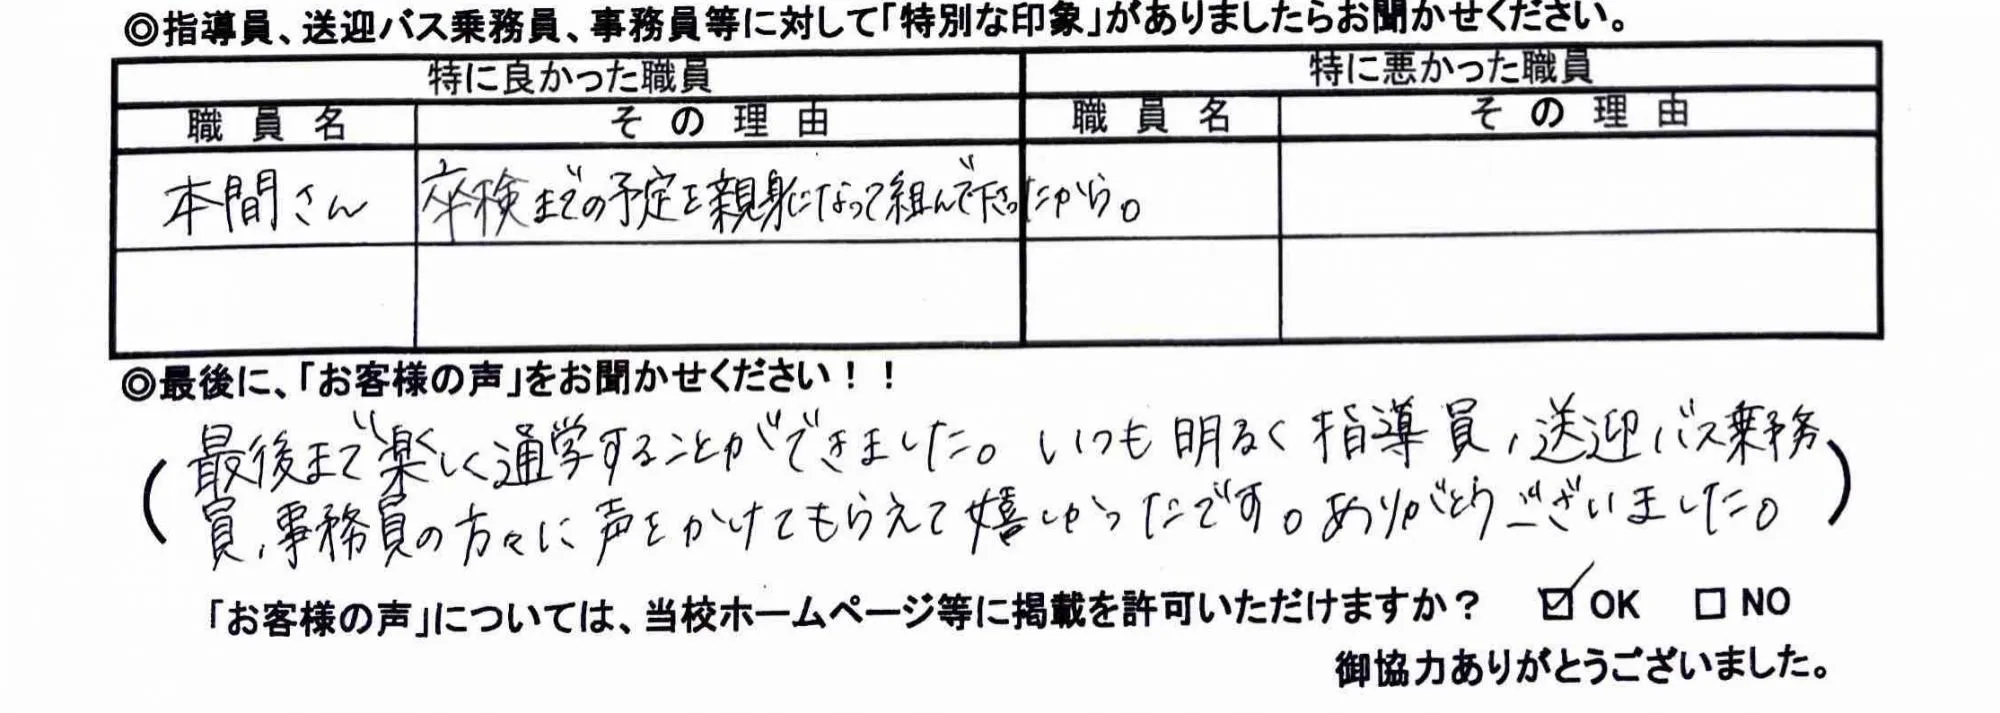 ◎指導員、送迎バス乗務員、事務員等に対して「特別な印象」がありましたらお聞かせください。
特に良かった職員 特に悪かった職員
職員名 その理由 職員名 その理由
本間さん 卒検までの予定を親身になって組んで下さったから。
◎最後に、「お客様の声」をお聞かせください！！
(最後まで楽しく通学することができました。いつも明るく指導員、送迎バス乗務
員、事務員の方々に声をかけてもらえて嬉しかったです。ありがとうございました。)
「お客様の声」については、当校ホームページ等に掲載を許可いただけますか？ ☑OK □NO
御協力ありがとうございました。